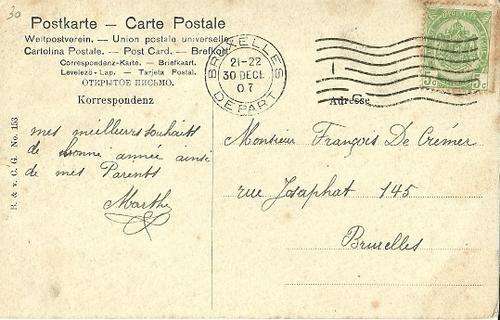 30
Postkarte — Carte Postale
Weltpostverein. — Union postale universelle
Cartolina Postale. — Post Card. — Brefkort
Correspondenz-Karte. — Briefkaart.
Levelező-Lap. — Tarjeta Postal.
ОТКРЫТОЕ ПИСЬМО.
Korrespondenz
Adresse
BRUXELLES
21-22
30 DECE
07
DEPART
mes meilleurs souhaits
de bonne année ainsi
de mes Parents
Marthe
Monsieur François De Cremer
rue Josaphat 145
Bruxelles
B. & v. C. G. No. 153